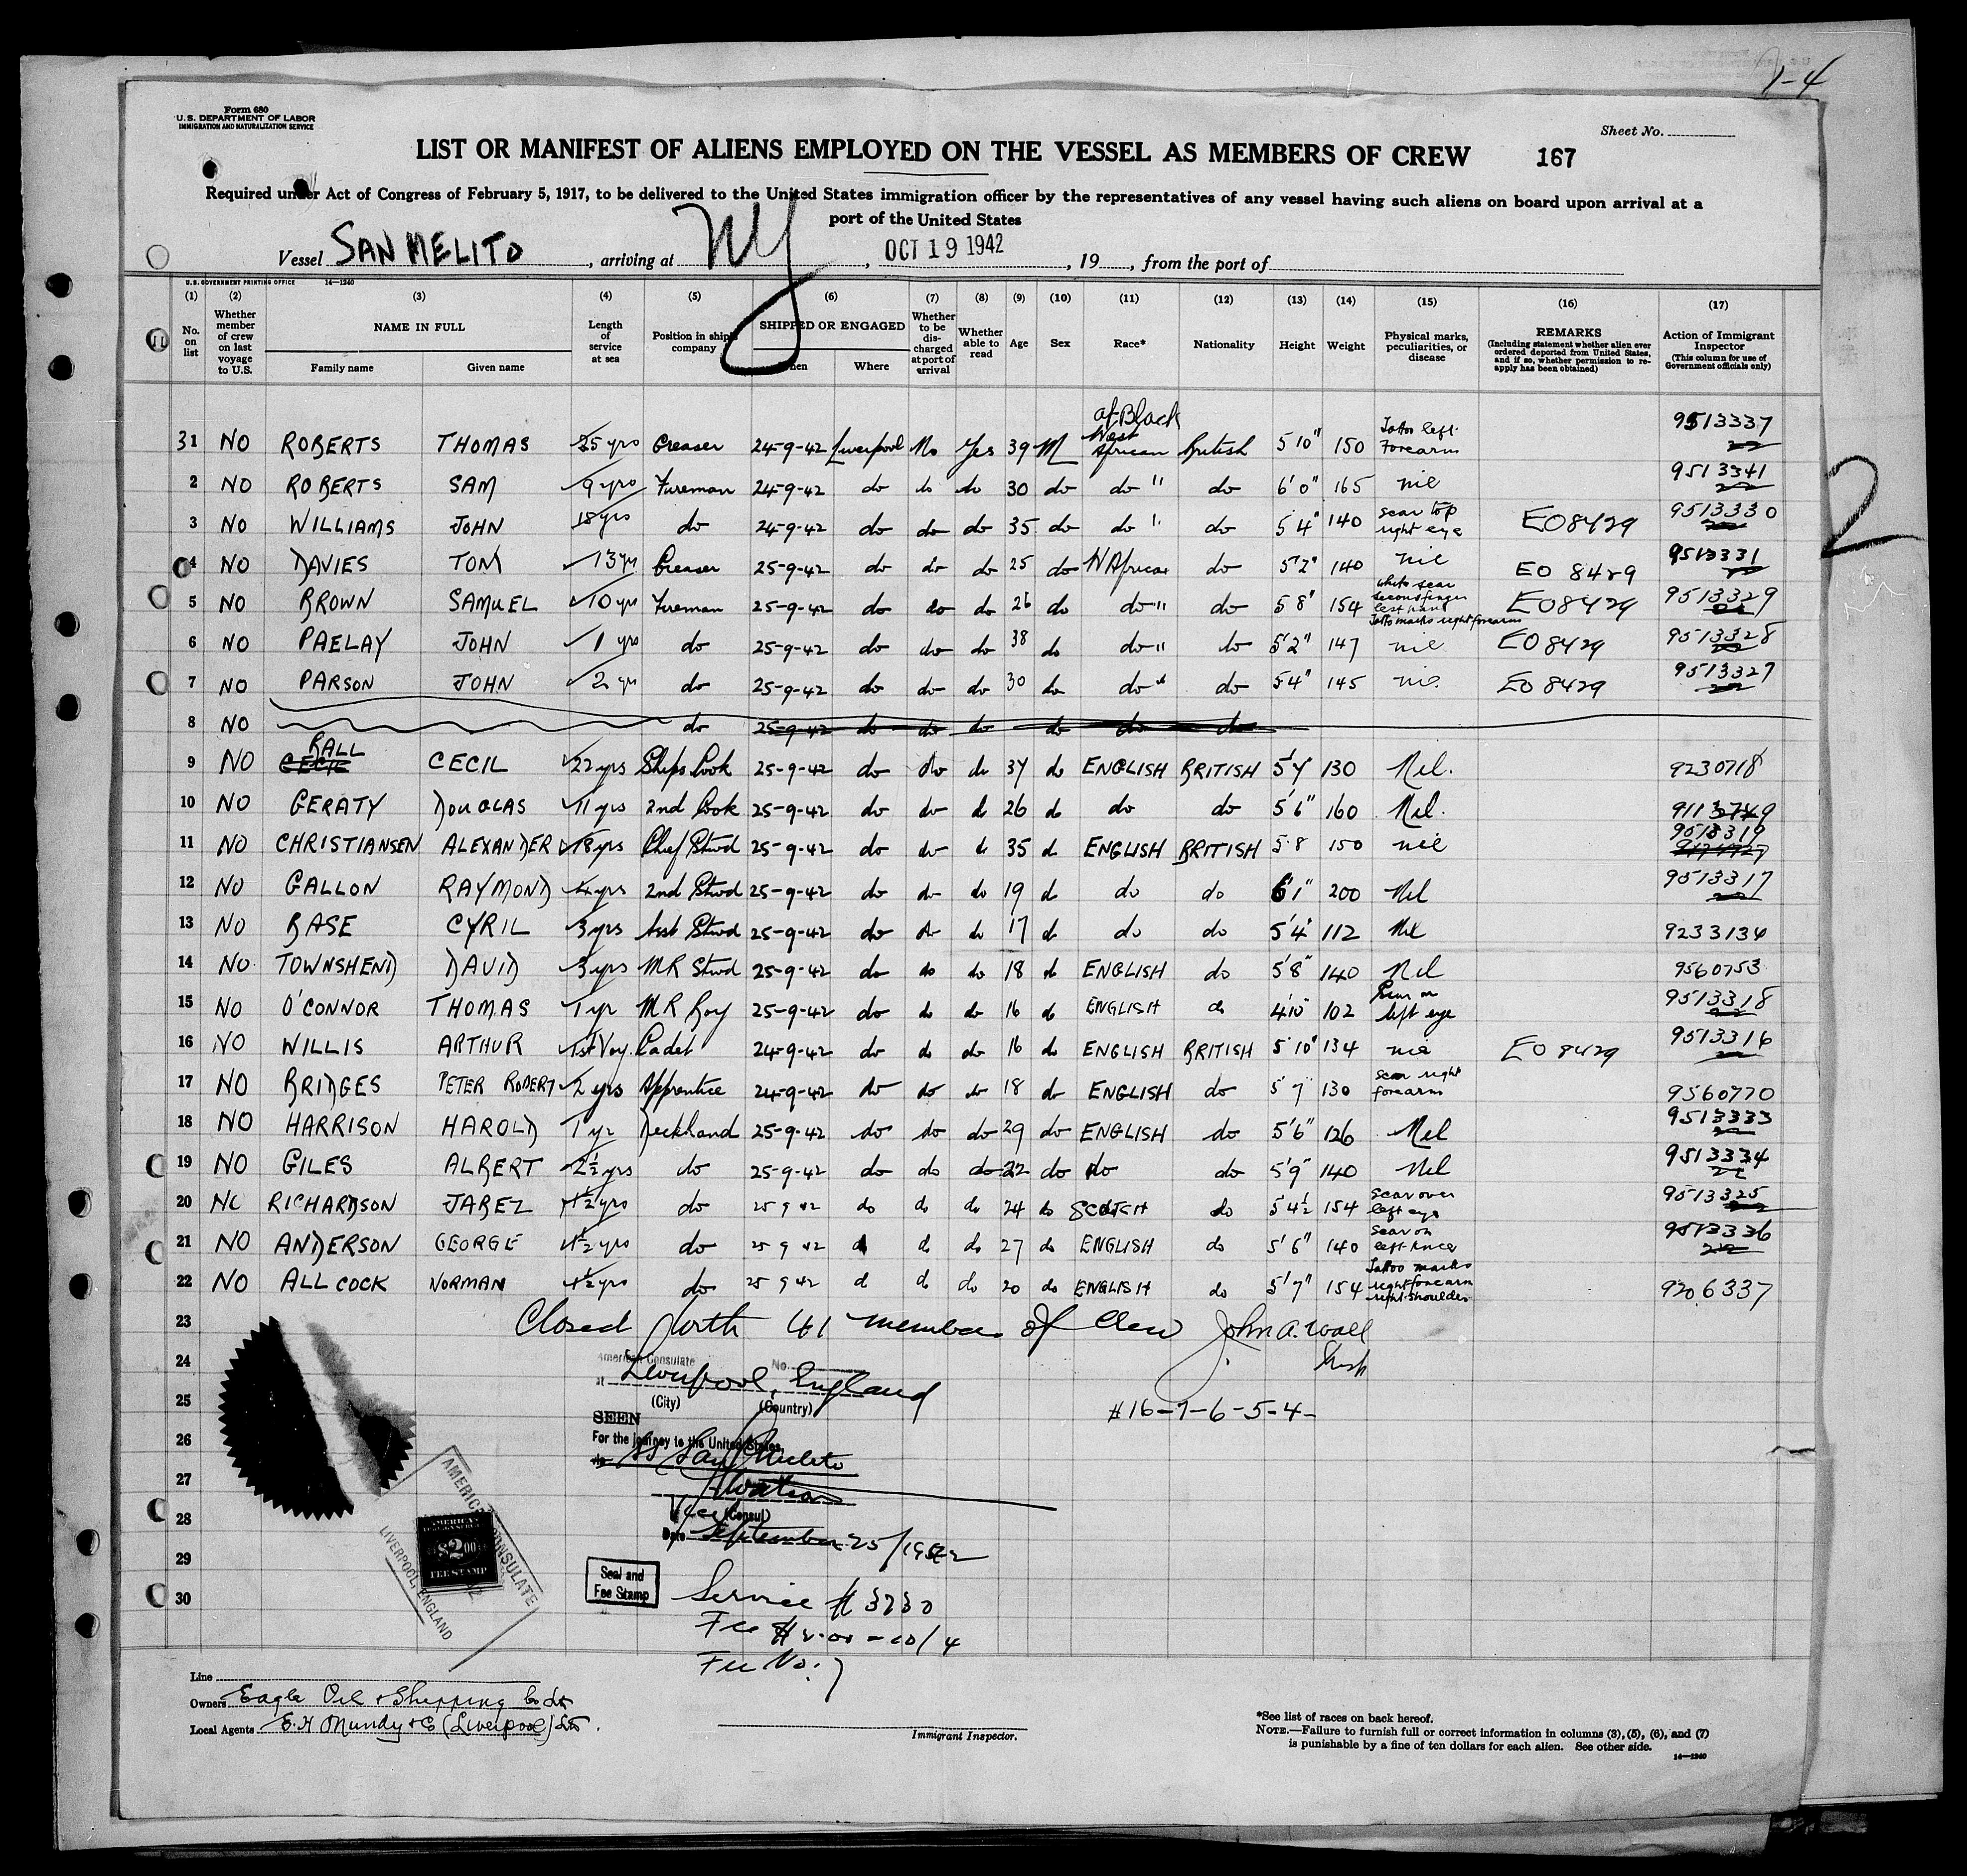 1-4
Form 680
U.S. DEPARTMENT OF LABOR
IMMIGRATION AND NATURALIZATION SERVICE
Sheet No.
LIST OR MANIFEST OF ALIENS EMPLOYED ON THE VESSEL AS MEMBERS OF CREW 167
Required under Act of Congress of February 5, 1917, to be delivered to the United States immigration officer by the representatives of any vessel having such aliens on board upon arrival at a
port of the United States
Vessel SAN MELITO, arriving at NY, OCT 19 1942, 19, from the port of
U.S. GOVERNMENT PRINTING OFFICE 14—1240
(1) (2) (3) (4) (5) (6) (7) (8) (9) (10) (11) (12) (13) (14) (15) (16) (17)
No. on list Whether member of crew on last voyage to U.S. NAME IN FULL Family name Given name Length of service at sea Position in ship's company SHIPPED OR ENGAGED When Where Whether to be discharged at port of arrival Whether able to read Age Sex Race* Nationality Height Weight Physical marks, peculiarities, or disease REMARKS (Including statement whether alien ever ordered deported from United States, and if so, whether permission to reapply has been obtained) Action of Immigrant Inspector (This column for use of Government officials only)
31 NO ROBERTS THOMAS 25 yrs Greaser 24-9-42 Liverpool No Yes 39 M af. Black West African British 5 10" 150 Tatto left Forearm 9513337
2 NO ROBERTS SAM 9 yrs Fireman 24-9-42 do do do 30 do do " do 6' 0" 165 nil 9513341
3 NO WILLIAMS JOHN 18 yrs do 24-9-42 do do do 35 do do " do 5 4" 140 scar top right eye EO 8429 9513330
4 NO DAVIES TOM 13 yr Greaser 25-9-42 do do do 25 do W African do 5'2" 140 nil EO 8429 9513331
5 NO BROWN SAMUEL 10 yr Fireman 25-9-42 do do do 26 do do " do 5 8" 154 white scar second finger left hand Tatto marks right forearm EO 8429 9513329
6 NO PAELAY JOHN 1 yrs do 25-9-42 do do do 38 do do " do 5'2" 147 nil EO 8429 9513328
7 NO PARSON JOHN 2 yr do 25-9-42 do do do 30 do do " do 5 4" 145 nil EO 8429 9513327
8 NO do 25-9-42 do do do do do do
9 NO CECIL BALL CECIL 22 yrs Ships Cook 25-9-42 do do do 37 do ENGLISH BRITISH 5'7" 130 Nil. 9230718
10 NO GERATY DOUGLAS 11 yrs 2nd Cook 25-9-42 do do do 26 do do do 5'6" 160 Nil.
11 NO CHRISTIANSEN ALEXANDER 18 yrs Chief Stwd 25-9-42 do do do 35 do ENGLISH BRITISH 5.8 150 nil 9513319
12 NO GALLON RAYMOND 4 yrs 2nd Stwd 25-9-42 do do do 19 do do do 6'1" 200 Nil 9513317
13 NO BASE CYRIL 3 yrs Asst Stwd 25-9-42 do do do 17 do do do 5'4" 112 Nil 9233134
14 NO. TOWNSHEND DAVID 3 yrs MR Stwd 25-9-42 do do do 18 do ENGLISH do 5'8" 140 Nil 9560753
15 NO O'CONNOR THOMAS 1 yr MR Boy 25-9-42 do do do 16 do ENGLISH do 4'10" 102 Scar on left eye 9513318
16 NO WILLIS ARTHUR 1st Voy. Cadet 24-9-42 do do do 16 do ENGLISH BRITISH 5'10" 134 nil EO 8429 9513316
17 NO BRIDGES PETER ROBERT 2 yrs Apprentice 24-9-42 do do do 18 do ENGLISH do 5'7 130 scar right forearm 9560770
18 NO HARRISON HAROLD 1 yr Deckhand 25-9-42 do do do 29 do ENGLISH do 5'6" 126 Nil 9513333
19 NO GILES ALBERT 2½ yrs do 25-9-42 do do do 22 do do do 5'9" 140 Nil 9513334
20 NO RICHARDSON JABEZ 1½ yrs do 25 9 42 do do do 24 do SCOTCH do 5 4½ 154 scar over left eye 9513325
21 NO ANDERSON GEORGE 1½ yrs do 25 9 42 d do do 27 do ENGLISH do 5'6" 140 scar on left knee 9513336
22 NO ALLCOCK NORMAN 1½ yrs do 25 9 42 d do do 20 do ENGLISH do 5'7" 154 Tatto marks right forearm right shoulder 9206337
23 Closed with 41 members of Crew John A. Wall
24
American Consulate No.
at Liverpool, England
25 (City) (Country) #16-7-6-5-4-
SEEN
26 For the journey to the United States,
SS San Melito
27 Watson
Vice (Consul)
28
Date September 25/1942
29
30
Seal and
Fee Stamp
Service # 3230
Fee No. 7
AMERICAN CONSULATE
LIVERPOOL, ENGLAND
AMERICAN
$2.00
FEE STAMP
Line
Owners Eagle Oil & Shipping Co Ltd
Local Agents E.H Mundy & Co (Liverpool) Ltd.
Immigrant Inspector.
*See list of races on back hereof.
NOTE.—Failure to furnish full or correct information in columns (3), (5), (6), and (7)
is punishable by a fine of ten dollars for each alien. See other side.
14—1240
2